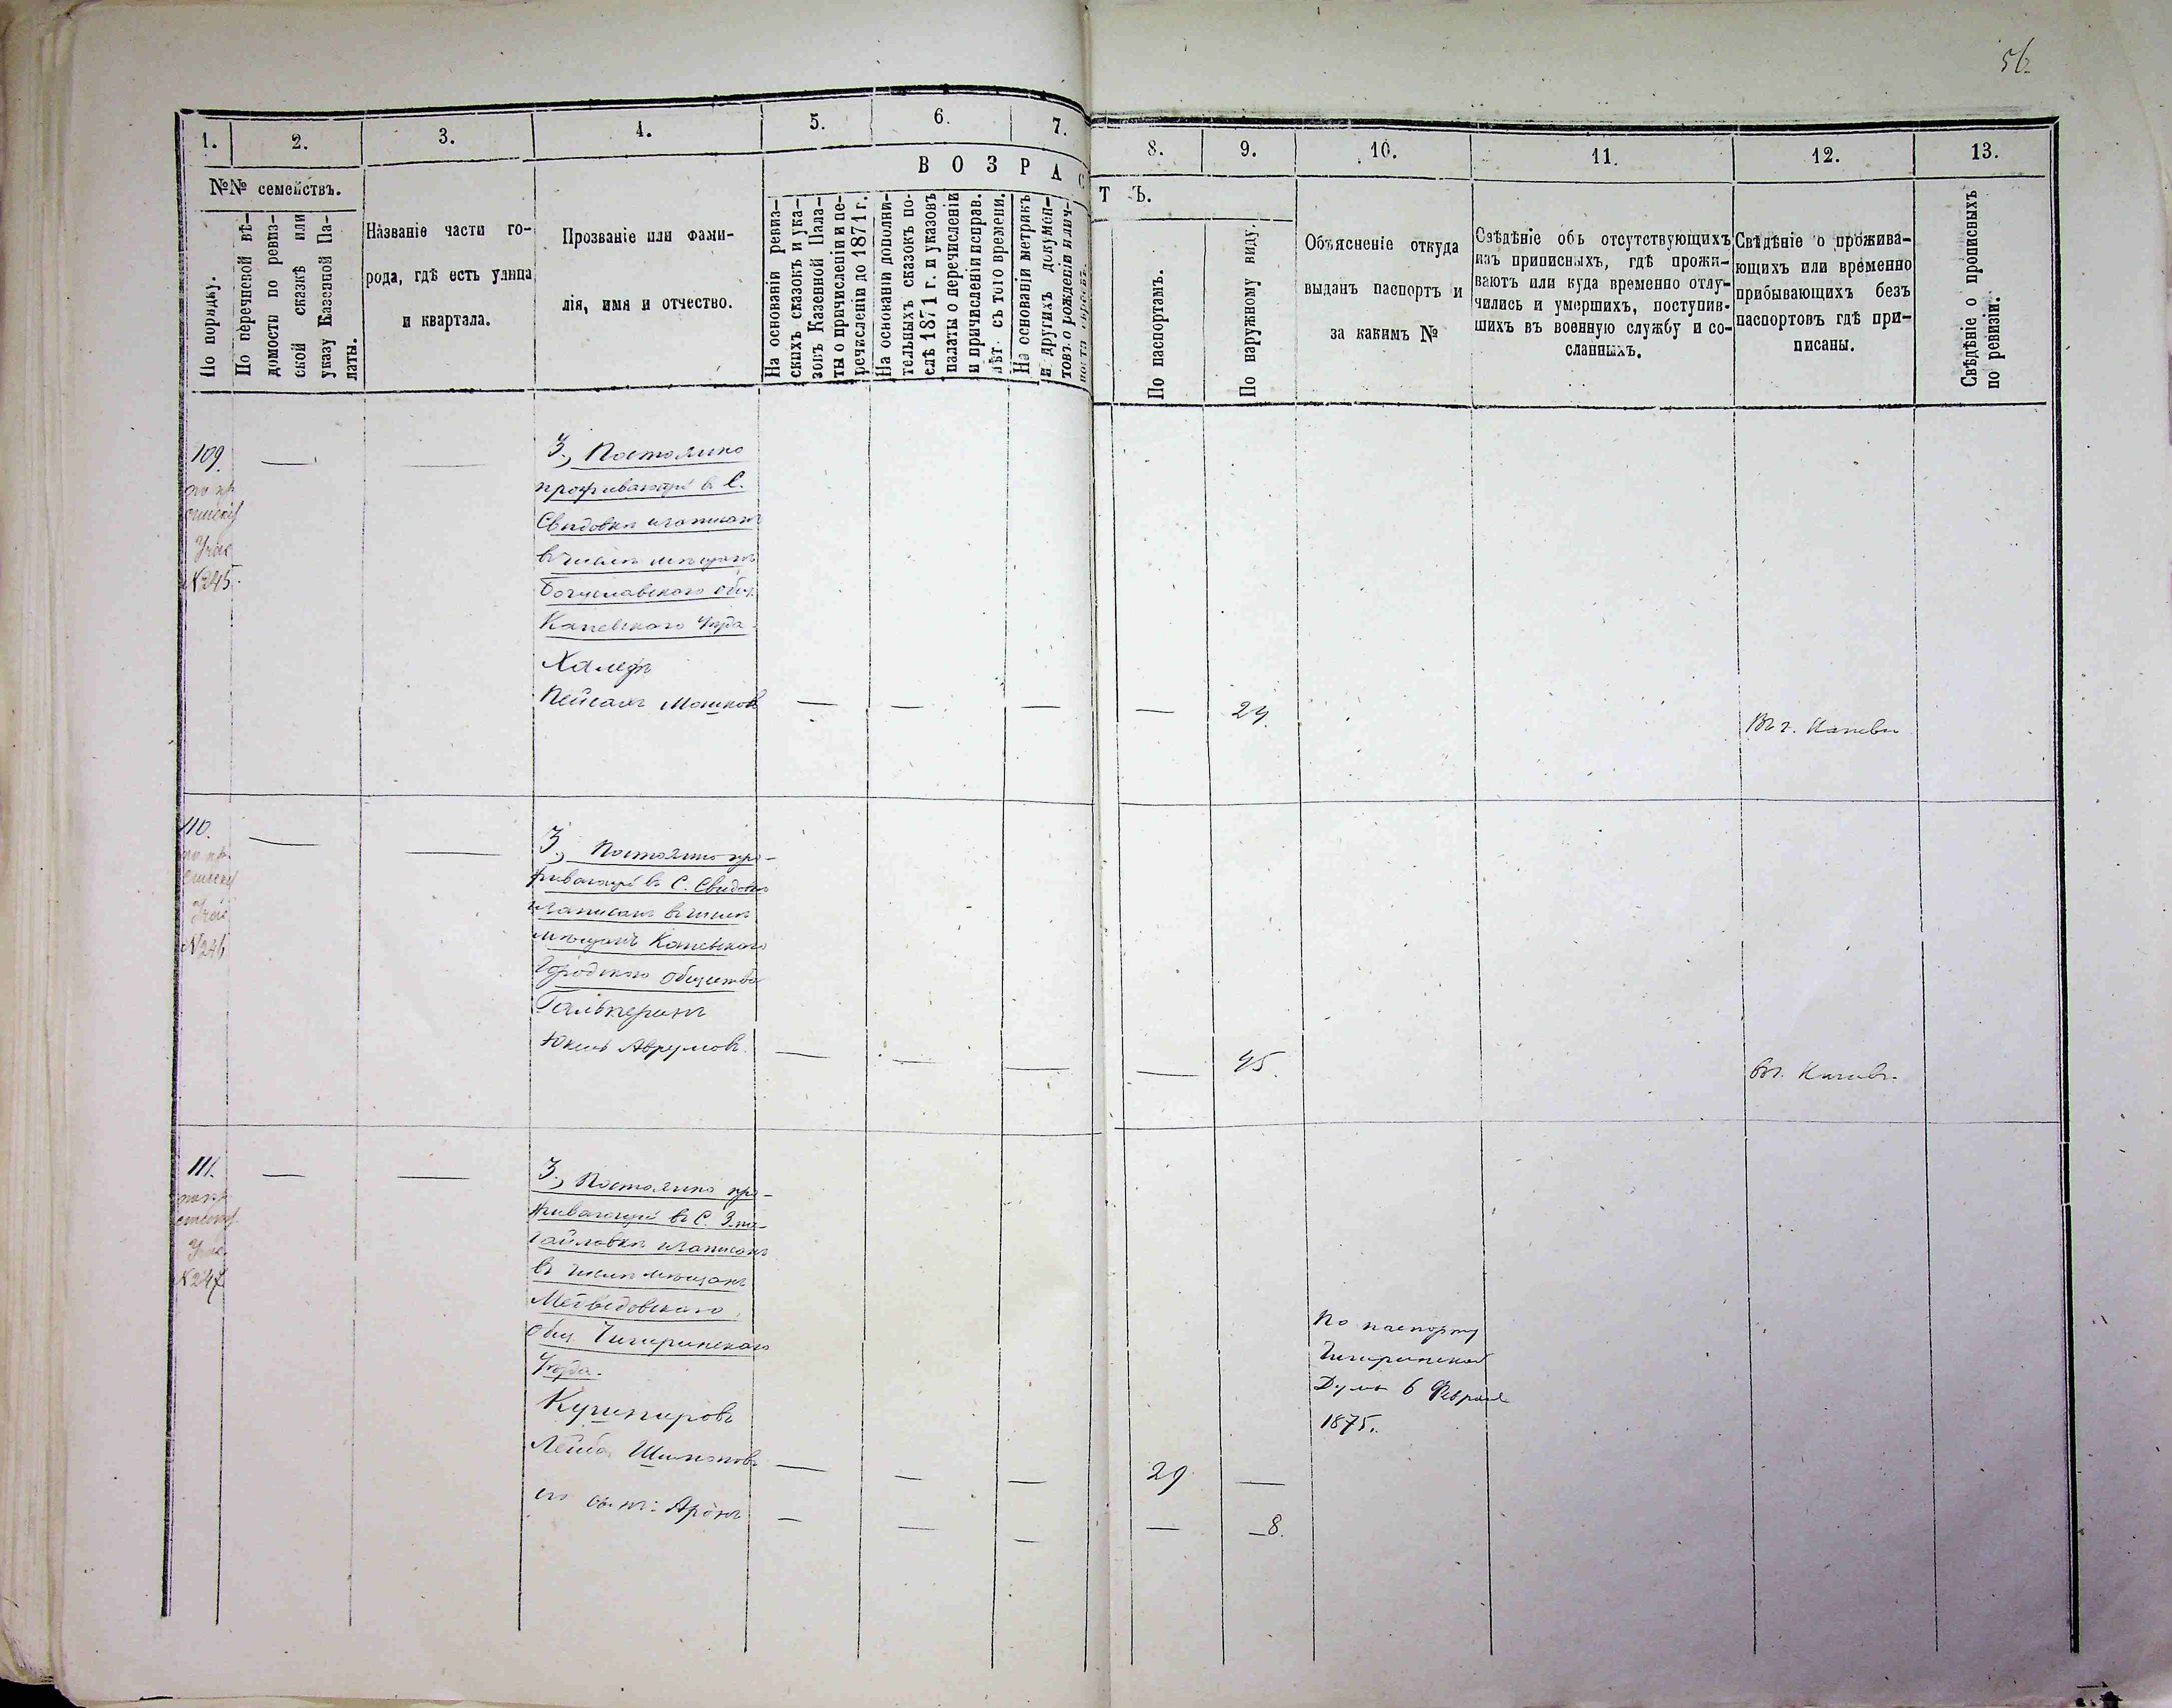 56.
1. 2. 3. 4. 5. 6. 7. 8. 9. 10. 11. 12. 13.
№№ семействъ.
ВОЗРАСТЪ.
По порядку.
По перечневой вѣ-
домости по ревиз-
ской сказкѣ или
указу Казенной Па-
латы.
Названіе части го-
рода, гдѣ есть улица
и квартала.
Прозваніе или фами-
лія, имя и отчество.
На основаніи ревиз-
скихъ сказокъ и ука-
зовъ Казенной Пала-
ты о причисленіи и пе-
речисленіи до 1871 г.
На основаніи дополни-
тельныхъ сказокъ по-
слѣ 1871 г. и указовъ
палаты о перечисленіи
и причисленіи исправ.
лѣт. съ того времени.
На основаніи метрикъ
и другихъ докумен-
товъ о рожденіи и лич-
По паспортамъ.
По наружному виду.
Объясненіе откуда
выданъ паспортъ и
за какимъ №
Свѣдѣніе объ отсутствующихъ
изъ приписныхъ, гдѣ прожи-
ваютъ или куда временно отлу-
чились и умершихъ, поступив-
шихъ въ военную службу и со-
сланныхъ.
Свѣдѣніе о прожива-
ющихъ или временно
прибывающихъ безъ
паспортовъ гдѣ при-
писаны.
Свѣдѣніе о прописныхъ
по ревизіи.
109.
по пр
списку
Учас
№245.
— —
3., Постоянно
проживающій въ С.
Свидовкѣ и записанъ
въ числѣ мѣщанъ
Богуславскаго общ.
Каневскаго Уѣзда.
Пейсахъ Мошковъ — — — — 24.
Въ г. Каневѣ
110.
по пр.
списку
Учас
№246
— —
3., Постоянно про-
живающій въ С. Свидовкѣ
и записанъ въ числѣ
мѣщанъ Каневскаго
Городского общества
Гальперинъ
Юкель Аврумовъ. — — — — 45.
Въ г. Каневѣ.
111.
по пр
списку
Учас
№247
— —
3., Постоянно про-
живающій въ С.
и записанъ
въ числѣ мѣщанъ
Медведовскаго
Общ. Чигиринскаго
Уѣзда.
Кушнировъ
Лейба — — — 29 —
его сынъ: Аронъ — — — — 8.
По паспорту
Чигиринской
Думы 6 Февраля
1875.